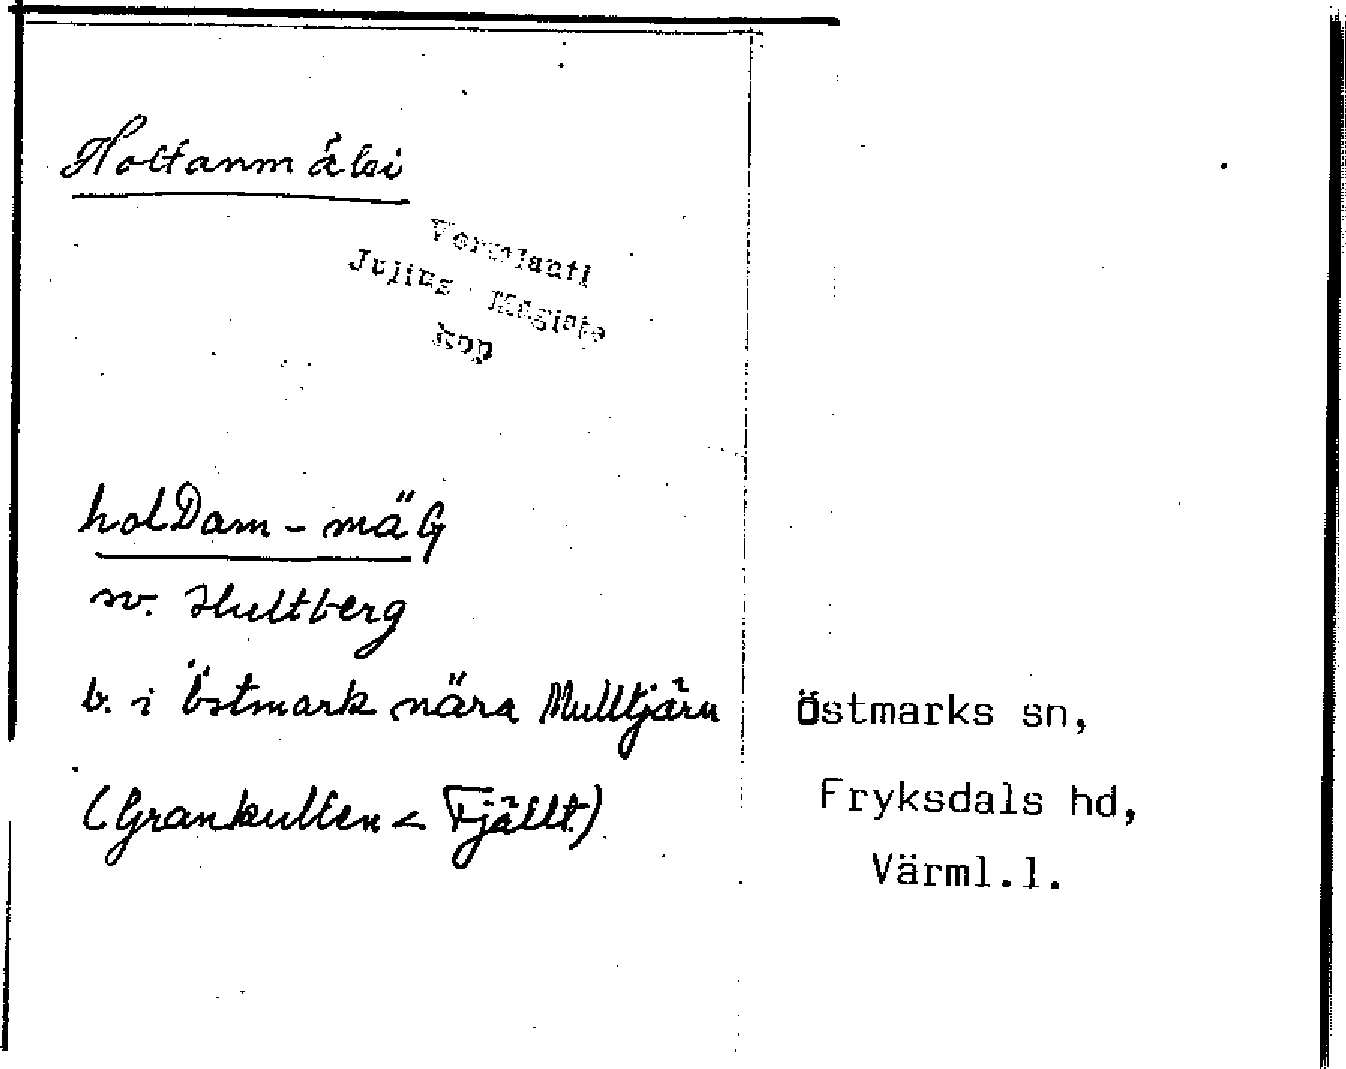 Holtanmäki
Vermlanti
Julius Mägiste
kop
holDam-mäG
sv. Hultberg
b. i Östmark nära Mulltjärn
(Grankullen < Fjällt.)
Östmarks sn,
Fryksdals hd,
Värml.l.